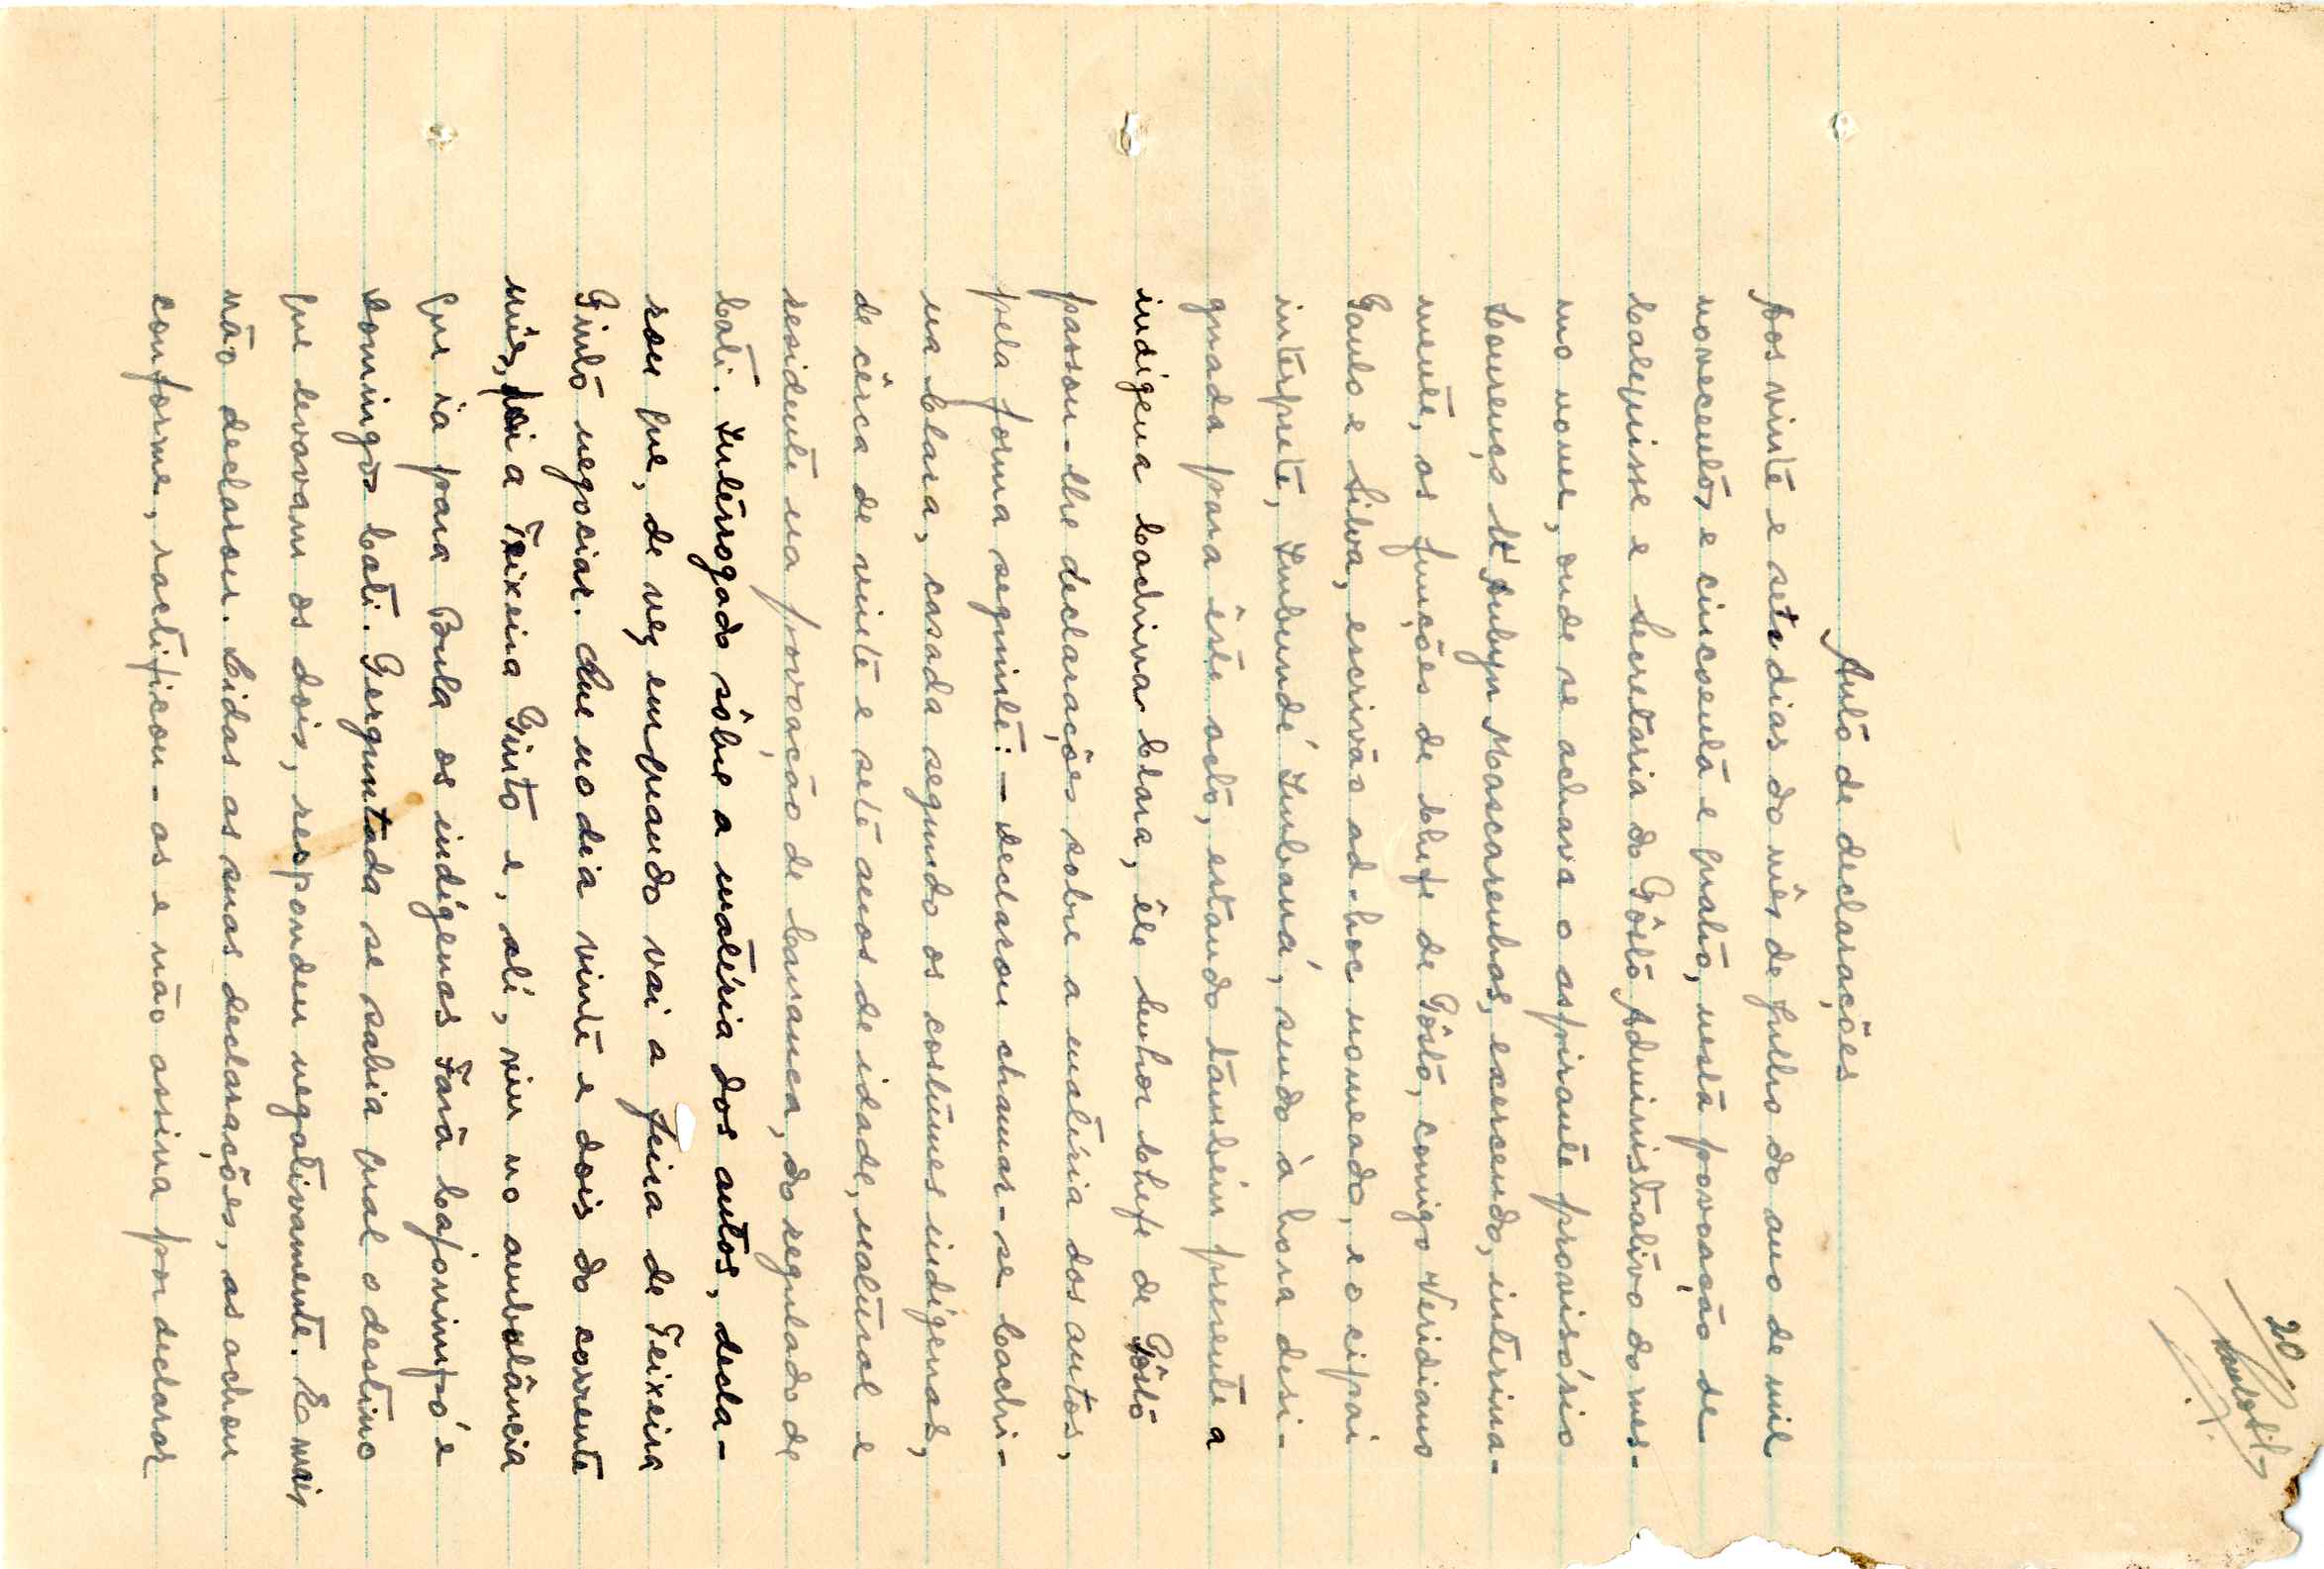 20
Auto de declarações
Aos vinte e sete dias do mês de Julho do ano de mil
novecentos e cincoenta e quatro, nesta povoação de
Calequisse e Secretaria do Pôsto Administrativo do mes-
mo nome, onde se achava o aspirante provisório
Lourenço M. Aubyn Mascarenhas, exercendo, interina-
mente, as funções de Chefe de Pôsto, comigo Veridiano
Paulo e Silva, escrivão ad-hoc nomeado, e o cipai
intérprete, Imbundé Imbaná, sendo à hora desi-
gnada para êste acto, estando também presente a
indígena Cachina Clara, êle Senhor Chefe de Pôsto
passou-lhe declarações sobre a matéria dos autos,
pela forma seguinte: — Declarou chamar-se Cachi-
na Clara, casada segundo os costumes indígenas,
de cêrca de vinte e sete anos de idade, natural e
residente na povoação de Caranca, do regulado de
Cati. Interrogado sôbre a matéria dos autos, decla-
rou que, de vez em quando vai a feira de Teixeira
Pinto negociar. Que no dia vinte e dois do corrente
mês, foi a Teixeira Pinto e, ali, viu no ambulância
que ia para Boula os indígenas Fará Cajonimpó e
Domingos Cati. Perguntada se sabia qual o destino
que levavam os dois, respondeu negativamente. E mais
não declarou. Lidas as suas declarações, as achou
conforme, ractificou-as e não assina por declarar